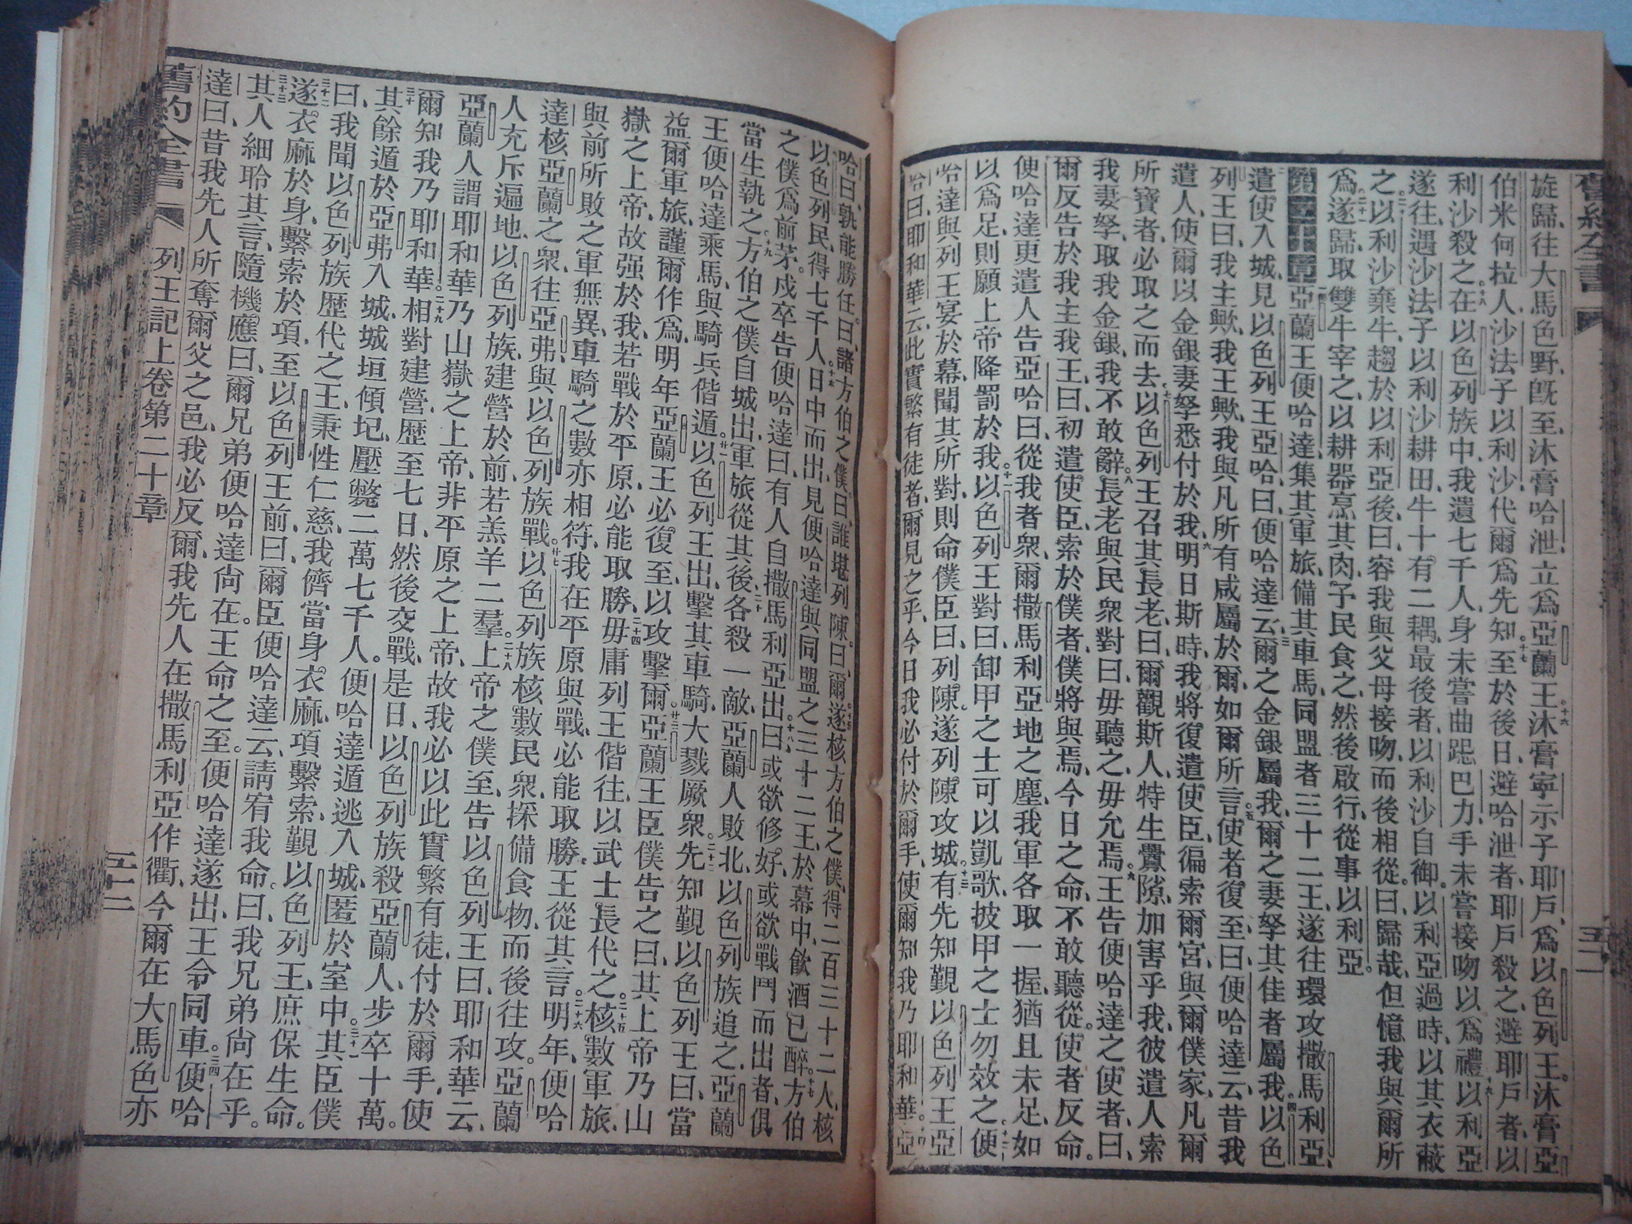 旋歸、往大馬色野、旣至、沐膏哈泄、立爲亞蘭王、沐膏寧示子耶戶、爲以色列王、沐膏亞
伯米何拉人、沙法子以利沙、代爾爲先知、至於後日、避哈泄者、耶戶殺之、避耶戶者、以
利沙殺之、在以色列族中、我遺七千人、身未嘗曲跽巴力、手未嘗接吻以爲禮、以利亞
遂往、遇沙法子以利沙耕田、牛十有二耦、最後者、以利沙自御、以利亞過時、以其衣蔽
之、以利沙棄牛、趨於以利亞後、曰、容我與父母接吻、而後相從、曰、歸哉、但憶我與爾所
爲、遂歸、取雙牛宰之、以耕器烹其肉、予民食之、然後啟行、從事以利亞。
亞蘭王便哈達集其軍旅、備其車馬、同盟者三十二王、遂往環攻撒馬利亞、
遣使入城、見以色列王亞哈、曰、便哈達云、爾之金銀屬我、爾之妻孥其佳者屬我、以色
列王曰、我主歟、我王歟、我與凡所有、咸屬於爾、如爾所言、使者復至、曰、便哈達云、昔我
遣人、使爾以金銀妻孥、悉付於我、明日斯時、我將復遣使臣、徧索爾宮、與爾僕家、凡爾
所寶者、必取之而去、以色列王召其長老、曰、爾觀斯人、特生釁隙、加害乎我、彼遣人索
我妻孥、取我金銀、我不敢辭、長老與民衆對曰、毋聽之、毋允焉、王告便哈達之使者、曰、
爾反告於我主我王、曰、初遣使臣、索於僕者、僕將與焉、今日之命、不敢聽從、使者反命。
便哈達更遣人告亞哈、曰、從我者衆、爾撒馬利亞地之塵、我軍各取一握、猶且未足、如
以爲足、則願上帝降罰於我、以色列王對曰、卸甲之士、可以凱歌、披甲之士、勿效之、便
哈達與列王宴於幕、聞其所對、則命僕臣、曰、列陳、遂列陳攻城、有先知覲以色列王亞
哈、曰、耶和華云、此實繁有徒者、爾見之乎、今日我必付於爾手、使爾知我乃耶和華、亞
哈曰、孰能勝任、曰、諸方伯之僕、曰、誰堪列陳、曰、爾、遂核方伯之僕、得二百三十二人、核
以色列民、得七千人、日中而出、見便哈達與同盟之三十二王、於幕中飮酒已醉、方伯
之僕爲前茅、戍卒告便哈達曰、有人自撒馬利亞出、曰、或欲修好、或欲戰鬥而出者、俱
當生執之、方伯之僕自城出、軍旅從其後、各殺一敵、亞蘭人敗北、以色列族追之、亞蘭
王便哈達乘馬、與騎兵偕遁、以色列王出、擊其車騎、大戮厥衆、先知覲以色列王曰、當
益爾軍旅、謹爾作爲、明年亞蘭王必復至、以攻擊爾、亞蘭王臣僕告之曰、其上帝乃山
嶽之上帝、故强於我、若戰於平原、必能取勝、毋庸列王偕往、以武士長代之、核數軍旅、
與前所敗之軍無異、車騎之數亦相符、我在平原與戰、必能取勝、王從其言、明年、便哈
達核亞蘭之衆、往亞弗與以色列族戰、以色列族核數民衆、採備食物、而後往攻、亞蘭
人充斥遍地、以色列族建營於前、若羔羊二羣、上帝之僕至、告以色列王曰、耶和華云、
亞蘭人謂耶和華乃山嶽之上帝、非平原之上帝、故我必以此實繁有徒、付於爾手、使
爾知我乃耶和華、相對建營、歷至七日、然後交戰、是日、以色列族殺亞蘭人步卒十萬。
其餘遁於亞弗、入城、城垣傾圮、壓斃二萬七千人、便哈達遁逃入城、匿於室中、其臣僕
曰、我聞以色列族歷代之王、秉性仁慈、我儕當身衣麻、項繫索、覲以色列王、庶保生命。
遂衣麻於身、繫索於項、至以色列王前、曰、爾臣便哈達云、請宥我命、曰、我兄弟尙在乎。
其人細聆其言、隨機應曰、爾兄弟便哈達尙在、王命之至、便哈達遂出、王令同車、便哈
達曰、昔我先人所奪爾父之邑、我必反爾、我先人在撒馬利亞作衢、今爾在大馬色亦
舊約全書 列王記上卷第二十章 五十二